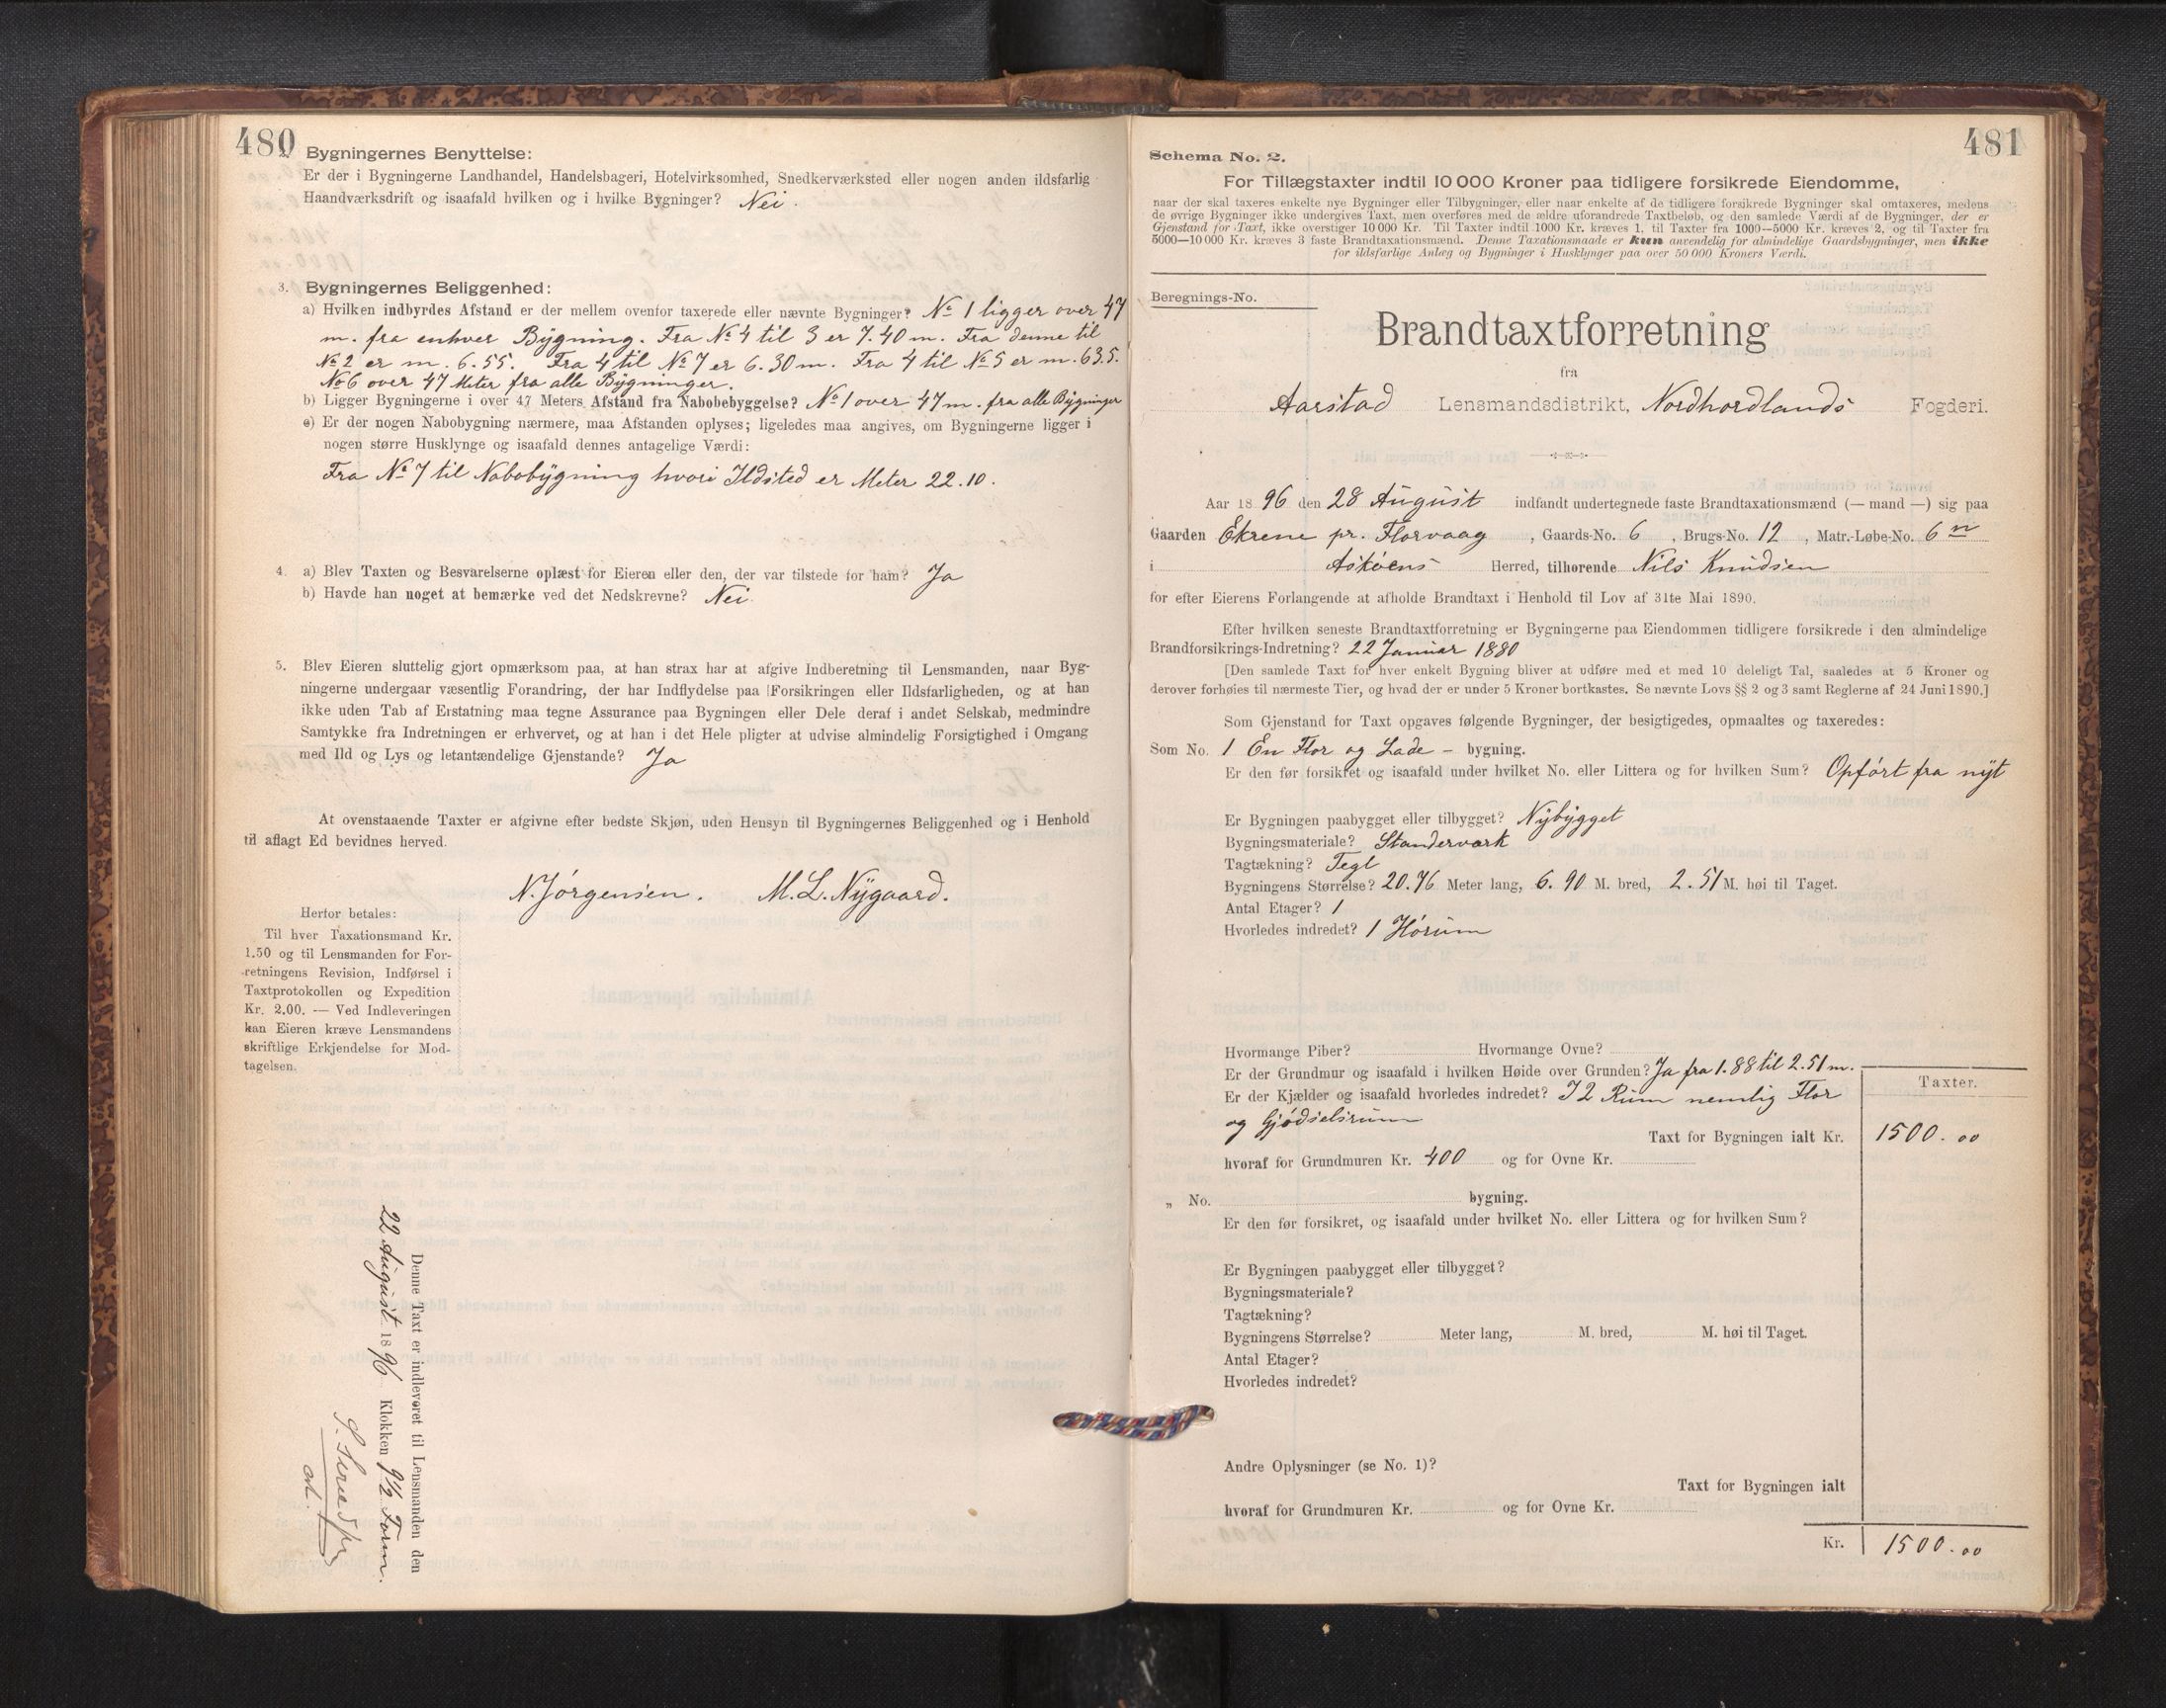 480
2. Bygningernes Benyttelse:
Er der i Bygningerne Landhandel, Handelsbageri, Hotelvirksomhed, Snedkerværksted eller nogen anden ildsfarlig
Haandværksdrift og isaafald hvilken og i hvilke Bygninger? Nei.
3. Bygningernes Beliggenhed:
a) Hvilken indbyrdes Afstand er der mellem ovenfor taxerede eller nævnte Bygninger? No 1 ligger over 47
m. fra enhver Bygning. Fra No 4 til 3 er 7.40 m. Fra denne til
No 2 er m. 6.55. Fra 4 til No 7 er 6.30 m. Fra 4 til No 5 er m. 63.5.
No 6 over 47 Meter fra alle Bygninger.
b) Ligger Bygningerne i over 47 Meters Afstand fra Nabobebyggelse? No 1 over 47 m. fra alle Bygninger
c) Er der nogen Nabobygning nærmere, maa Afstanden oplyses; ligeledes maa angives, om Bygningerne ligger i
nogen større Husklynge og isaafald dennes antagelige Værdi:
Fra No 7 til Nabobygning hvori Ildsted er Meter 22.10.
4. a) Blev Taxten og Besvarelserne oplæst for Eieren eller den, der var tilstede for ham? Ja
b) Havde han noget at bemærke ved det Nedskrevne? Nei.
5. Blev Eieren sluttelig gjort opmærksom paa, at han strax har at afgive Indberetning til Lensmanden, naar Byg-
ningerne undergaar væsentlig Forandring, der har Indflydelse paa Forsikringen eller Ildsfarligheden, og at han
ikke uden Tab af Erstatning maa tegne Assurance paa Bygningen eller Dele deraf i andet Selskab, medmindre
Samtykke fra Indretningen er erhvervet, og at han i det Hele pligter at udvise almindelig Forsigtighed i Omgang
med Ild og Lys og letantændelige Gjenstande? Ja
At ovenstaaende Taxter er afgivne efter bedste Skjøn, uden Hensyn til Bygningernes Beliggenhed og i Henhold
til aflagt Ed bevidnes herved.
N. Jørgensen. M. L. Nygaard.
Herfor betales:
Til hver Taxationsmand Kr.
1.50 og til Lensmanden for For-
retningens Revision, Indførsel i
Taxtprotokollen og Expedition
Kr. 2.00. — Ved Indleveringen
kan Eieren kræve Lensmandens
skriftlige Erkjendelse for Mod-
tagelsen.
Denne Taxt er indleveret til Lensmanden den
22 August 1896 Klokken 9½ Form.
481
Schema No. 2.
For Tillægstaxter indtil 10 000 Kroner paa tidligere forsikrede Eiendomme,
naar der skal taxeres enkelte nye Bygninger eller Tilbygninger, eller naar enkelte af de tidligere forsikrede Bygninger skal omtaxeres, medens
de øvrige Bygninger ikke undergives Taxt, men overføres med de ældre uforandrede Taxtbeløb, og den samlede Værdi af de Bygninger, der er
Gjenstand for Taxt, ikke overstiger 10 000 Kr. Til Taxter indtil 1000 Kr. kræves 1, til Taxter fra 1000—5000 Kr. kræves 2, og til Taxter fra
5000—10 000 Kr. kræves 3 faste Brandtaxationsmænd. Denne Taxationsmaade er kun anvendelig for almindelige Gaardsbygninger, men ikke
for ildsfarlige Anlæg og Bygninger i Husklynger paa over 50 000 Kroners Værdi.
Beregnings-No.
Brandtaxtforretning
fra
Aarstad Lensmandsdistrikt, Nordhordlands Fogderi.
Aar 1896 den 28 August indfandt undertegnede faste Brandtaxationsmænd (— mand —) sig paa
Gaarden Ekrene pr. Florvaag, Gaards-No. 6, Brugs-No. 12, Matr.-Løbe-No. 6 n
i Askøens Herred, tilhørende Nils Knudsen
for efter Eierens Forlangende at afholde Brandtaxt i Henhold til Lov af 31te Mai 1890.
Efter hvilken seneste Brandtaxtforretning er Bygningerne paa Eiendommen tidligere forsikrede i den almindelige
Brandforsikrings-Indretning? 22 Januar 1880
[Den samlede Taxt for hver enkelt Bygning bliver at udføre med et med 10 deleligt Tal, saaledes at 5 Kroner og
derover forhøies til nærmeste Tier, og hvad der er under 5 Kroner bortkastes. Se nævnte Lovs §§ 2 og 3 samt Reglerne af 24 Juni 1890.]
Som Gjenstand for Taxt opgaves følgende Bygninger, der besigtigedes, opmaaltes og taxeredes:
Som No. 1 En Flor og Lade - bygning.
Er den før forsikret og isaafald under hvilket No. eller Littera og for hvilken Sum? Opført fra nyt
Er Bygningen paabygget eller tilbygget? Nybygget
Bygningsmateriale? Standerværk
Tagtækning? Tegl
Bygningens Størrelse? 20.76 Meter lang, 6.90 M. bred, 2.51 M. høi til Taget.
Antal Etager? 1
Hvorledes indredet? 1 Hørum
Hvormange Piber? Hvormange Ovne?
Er der Grundmur og isaafald i hvilken Høide over Grunden? Ja fra 1.88 til 2.51 m.
Er der Kjælder og isaafald hvorledes indredet? I 2 Rum nemlig Flor
og Gjødselsrum
Taxter.
Taxt for Bygningen ialt Kr. 1500.00
hvoraf for Grundmuren Kr. 400 og for Ovne Kr.
„ No. bygning.
Er den før forsikret, og isaafald under hvilket No. eller Littera og for hvilken Sum?
Er Bygningen paabygget eller tilbygget?
Bygningsmateriale?
Tagtækning?
Bygningens Størrelse? Meter lang, M. bred, M. høi til Taget.
Antal Etager?
Hvorledes indredet?
Andre Oplysninger (se No. 1)?
Taxt for Bygningen ialt
hvoraf for Grundmuren Kr. og for Ovne Kr.
Kr. 1500.00